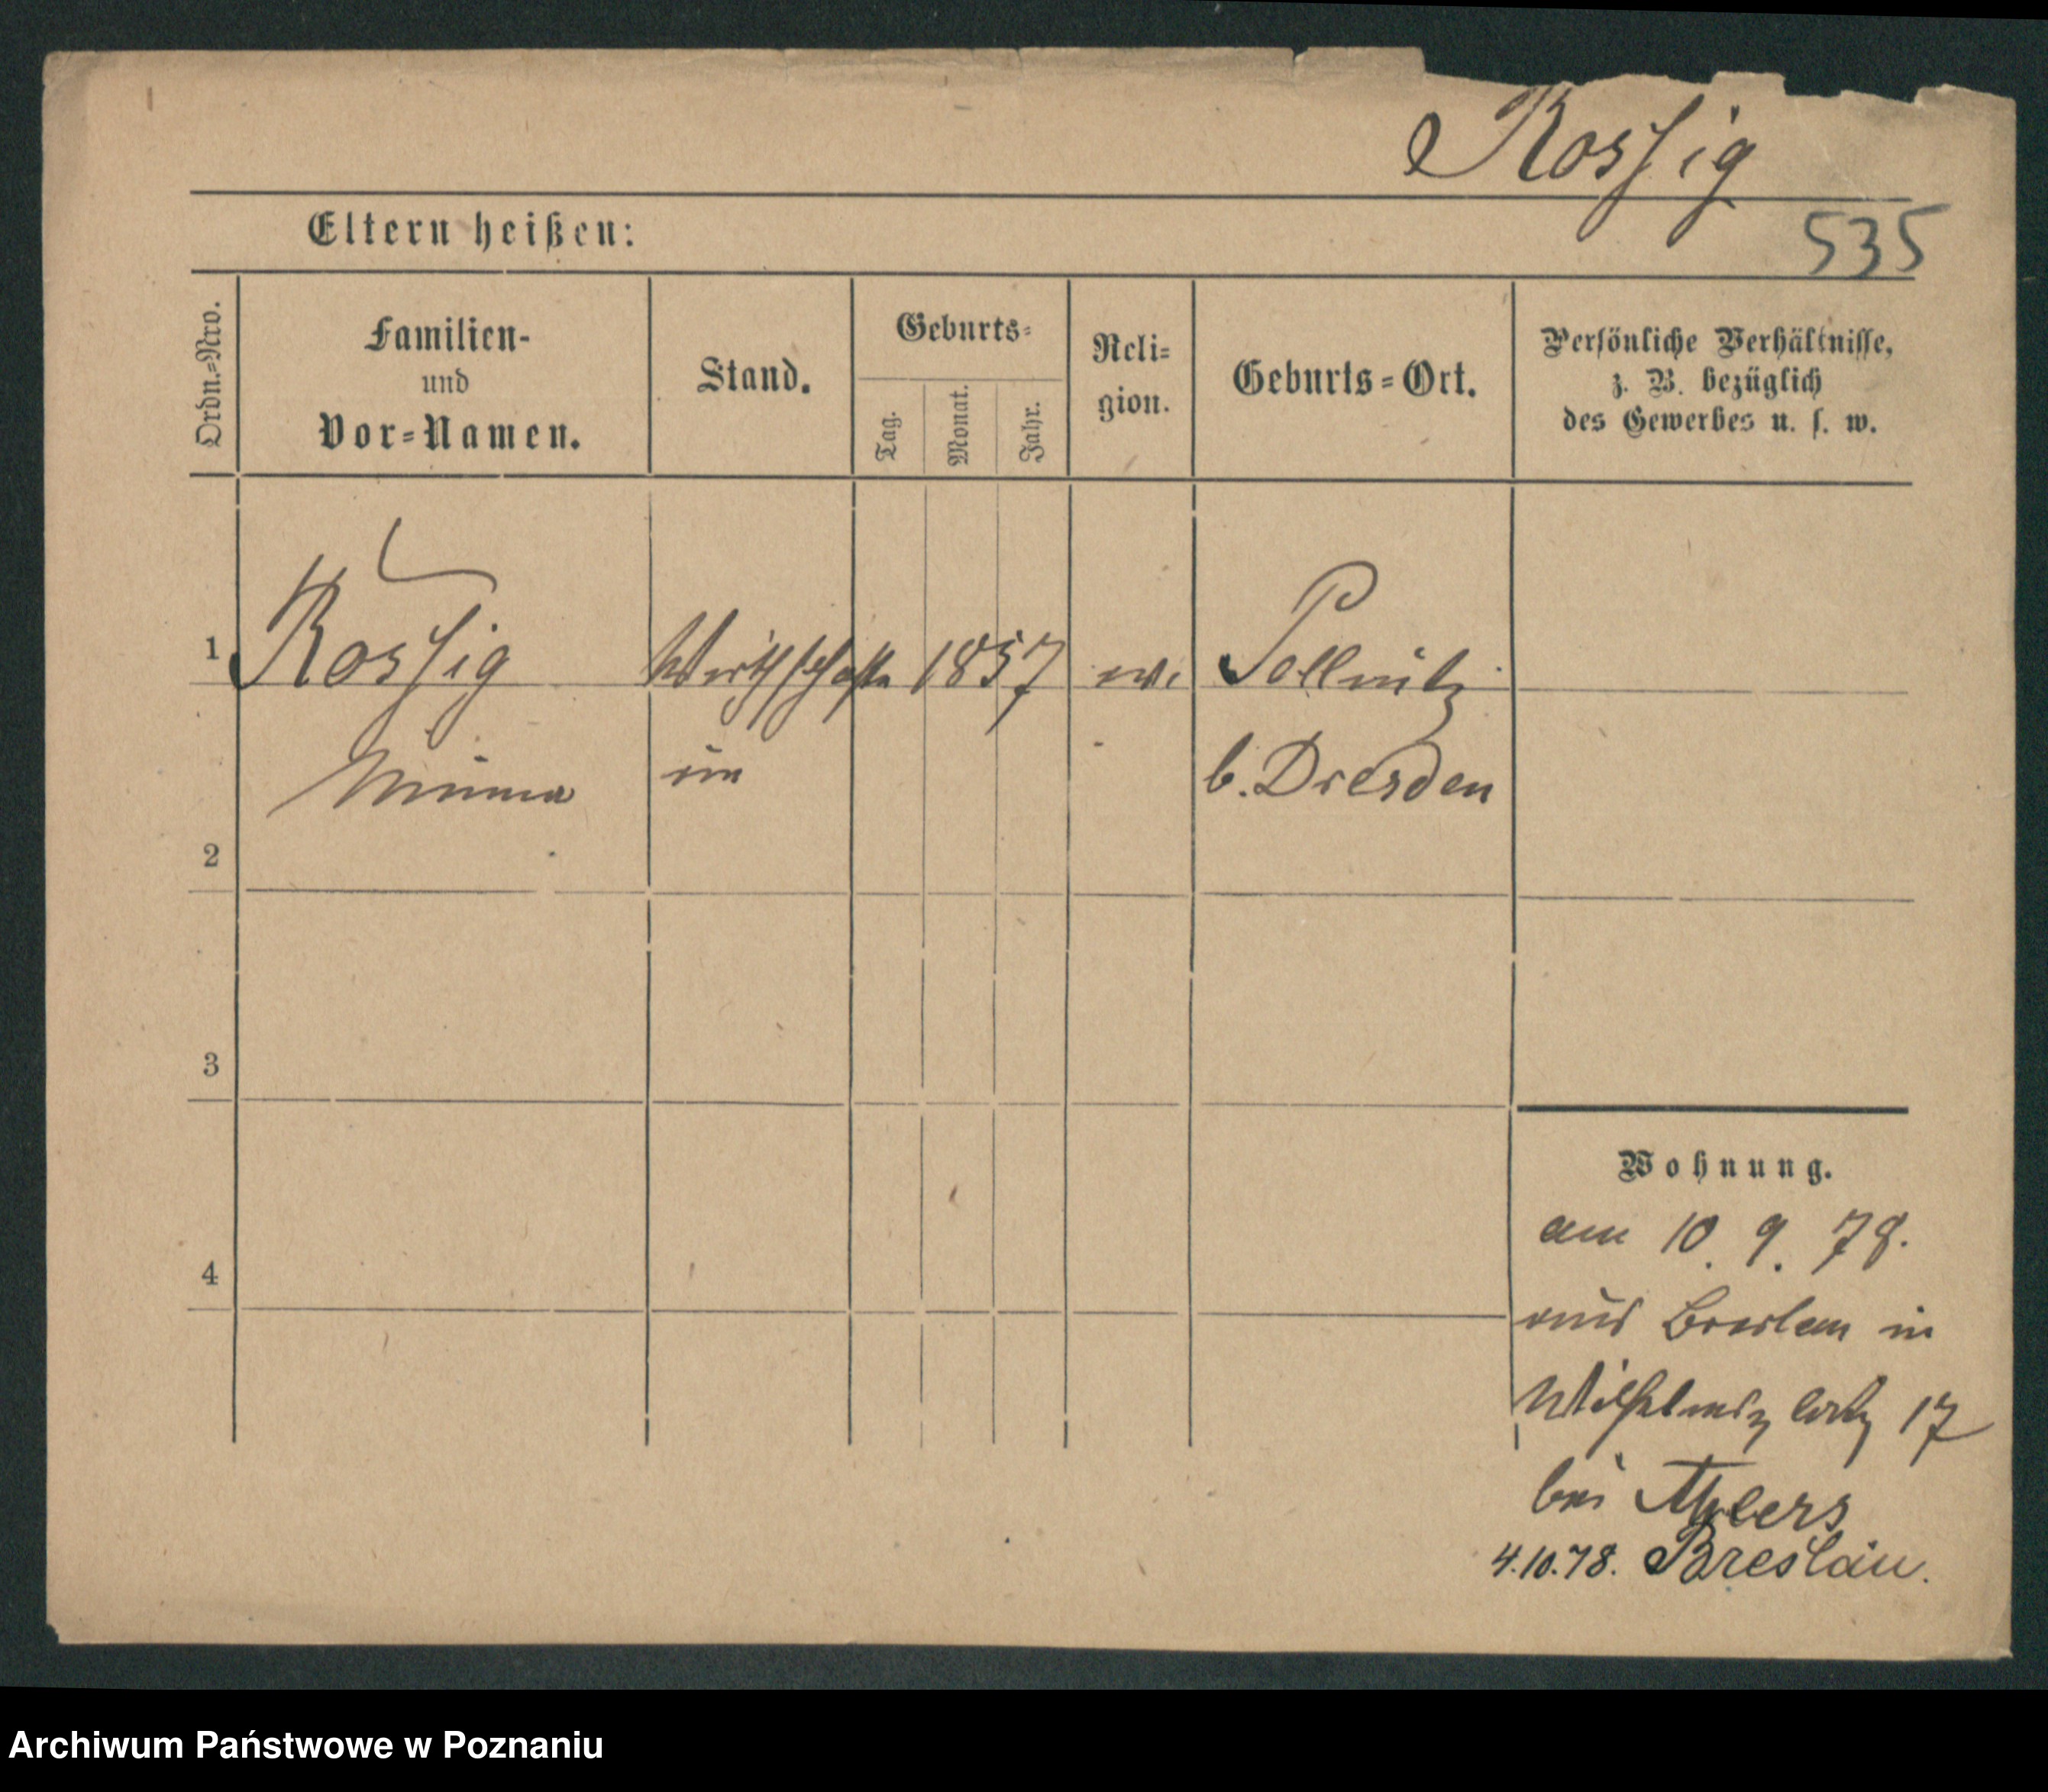 Rossig
535
Eltern heißen:
Ordn.=Nro.
Familien-
und
Vor=Namen.
Stand.
Geburts=
Tag.
Monat.
Jahr.
Reli=
gion.
Geburts=Ort.
Persönliche Verhältnisse,
z. B. bezüglich
des Gewerbes u. s. w.
1 Rossig Wirthschafte 1857 ev. Pollnitz
Minna in b. Dresden
2
3
4
Wohnung.
am 10. 9. 78.
aus Breslau in
17
bei
4.10.78. Breslau.
Archiwum Państwowe w Poznaniu